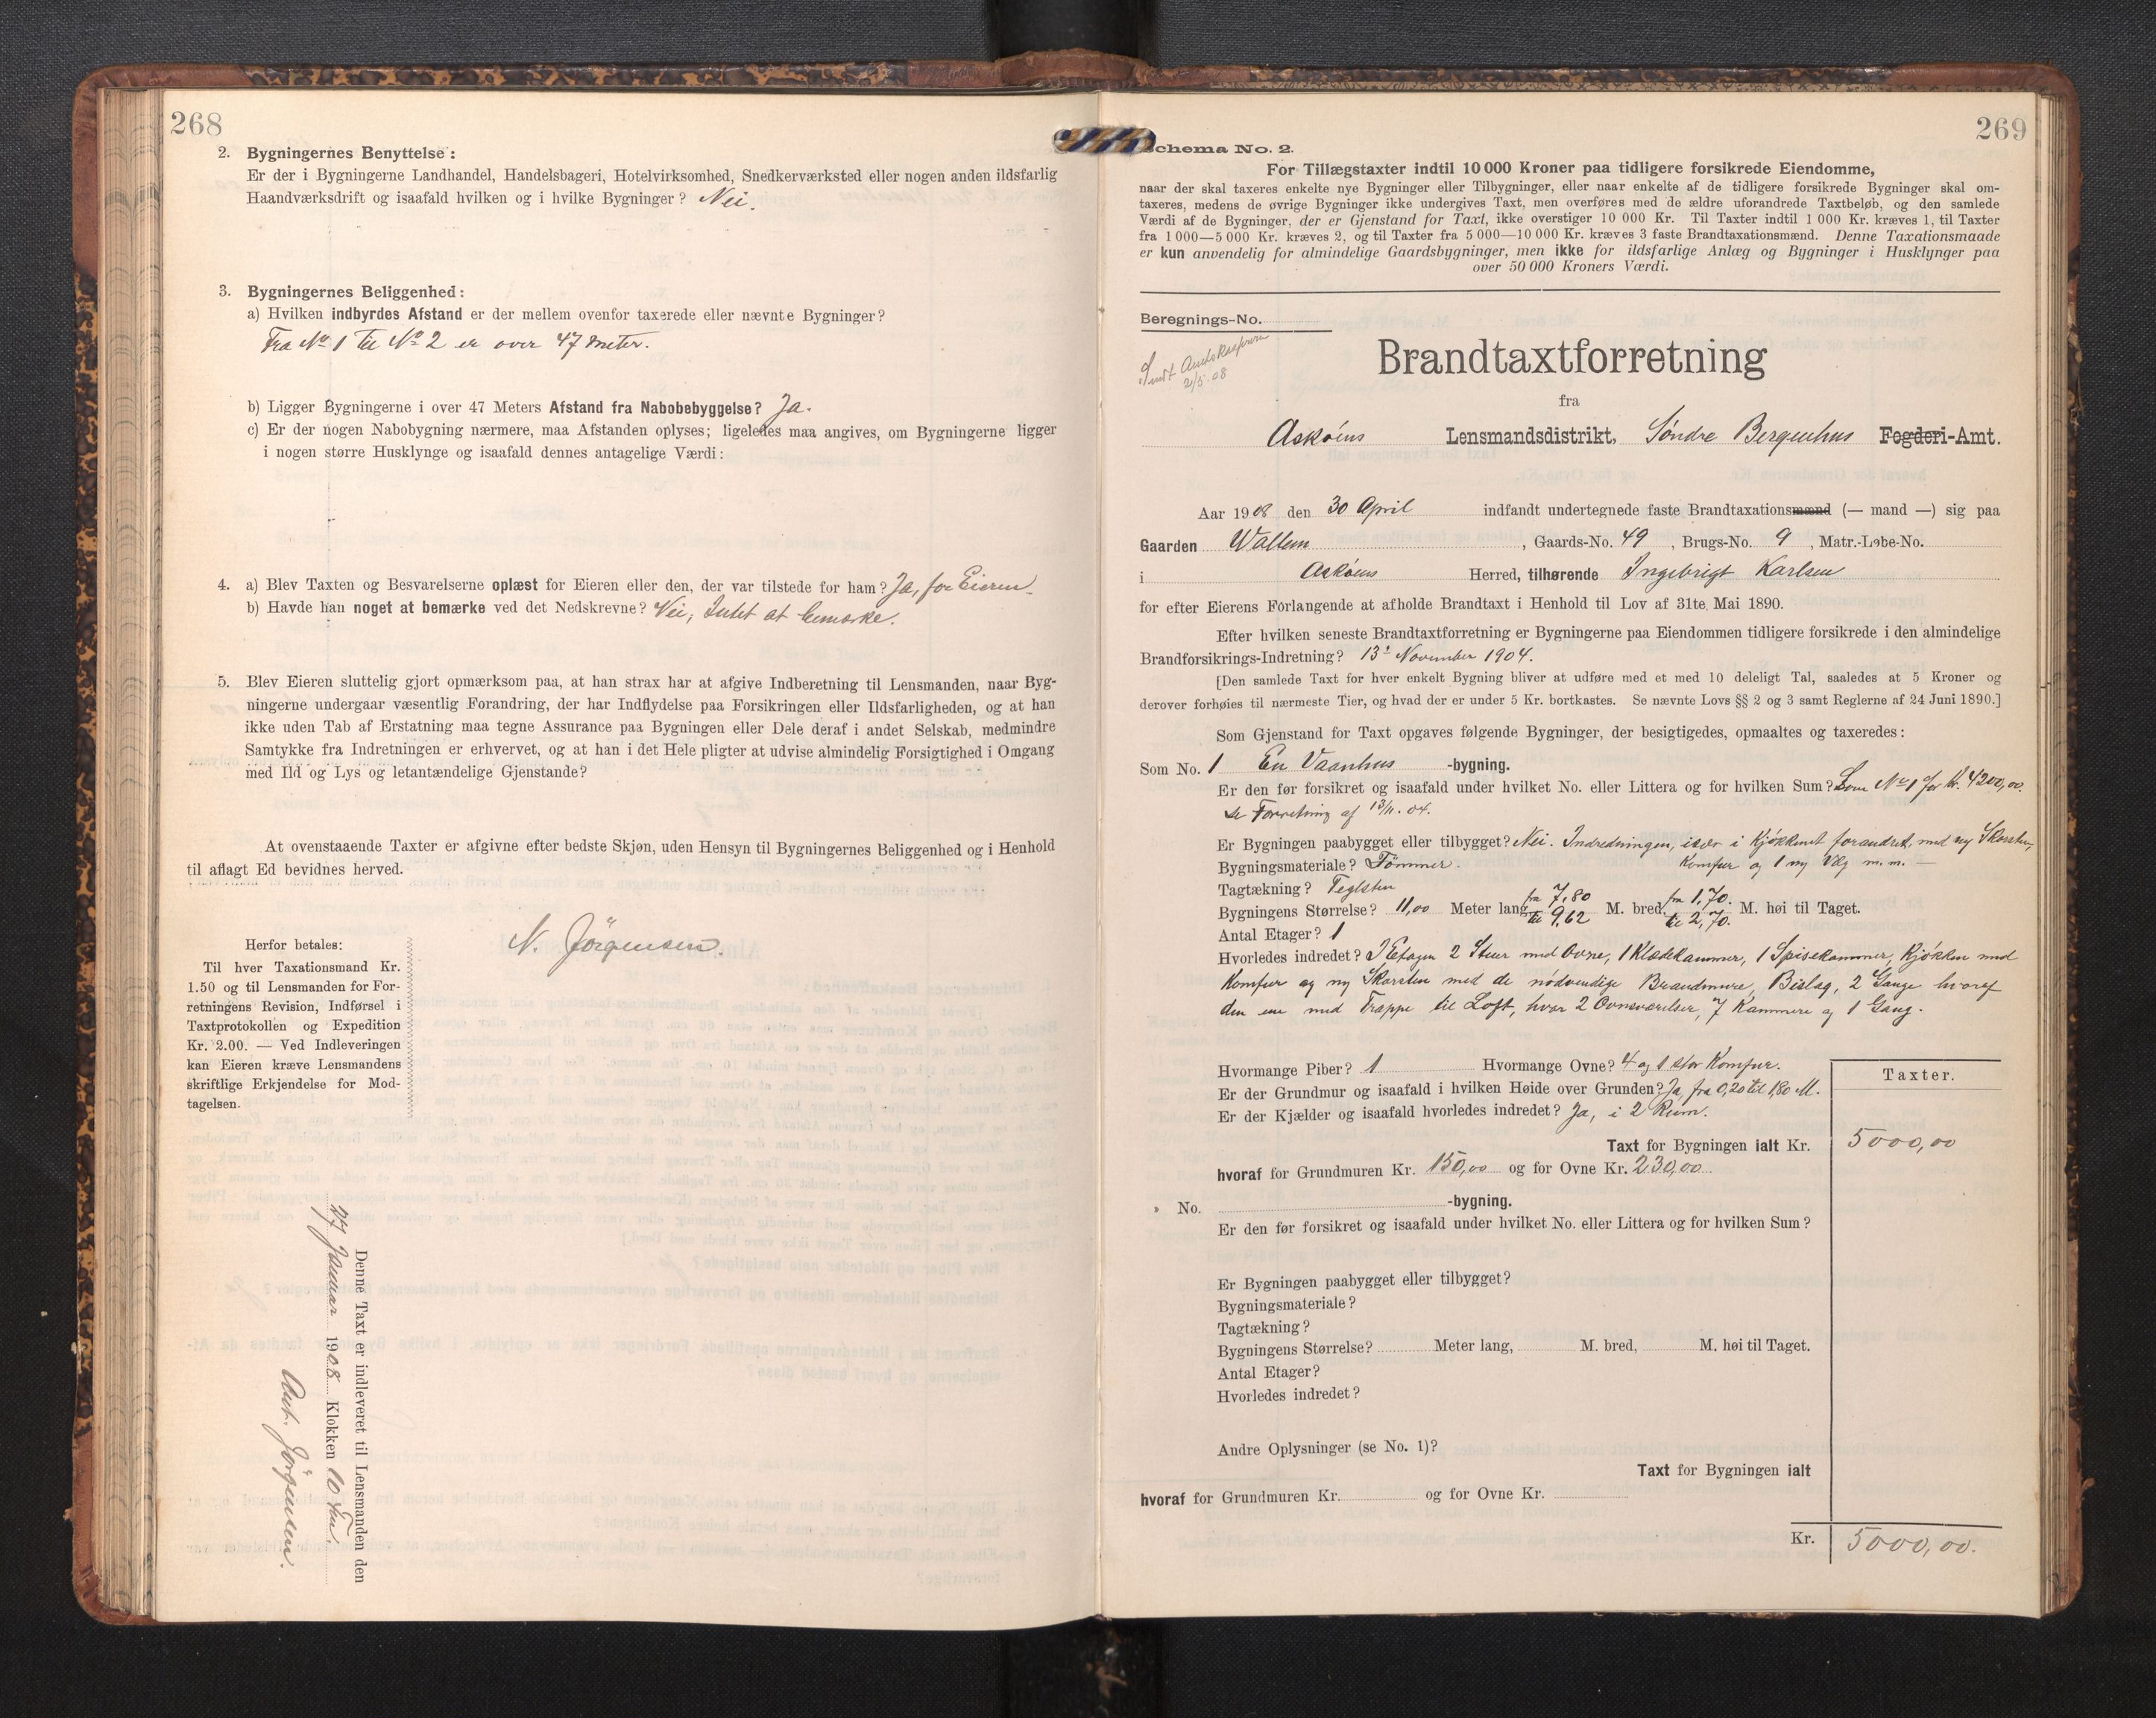 268
2. Bygningernes Benyttelse:
Er der i Bygningerne Landhandel, Handelsbageri, Hotelvirksomhed, Snedkerværksted eller nogen anden ildsfarlig
Haandværksdrift og isaafald hvilken og i hvilke Bygninger? Nei.
3. Bygningernes Beliggenhed:
a) Hvilken indbyrdes Afstand er der mellem ovenfor taxerede eller nævnte Bygninger?
Fra No 1 til No 2 er over 47 meter.
b) Ligger Bygningerne i over 47 Meters Afstand fra Nabobebyggelse? Ja.
c) Er der nogen Nabobygning nærmere, maa Afstanden oplyses; ligeledes maa angives, om Bygningerne ligger
i nogen større Husklynge og isaafald dennes antagelige Værdi:
4. a) Blev Taxten og Besvarelserne oplæst for Eieren eller den, der var tilstede for ham? Ja, for Eieren.
b) Havde han noget at bemærke ved det Nedskrevne? Nei, Intet at bemærke.
5. Blev Eieren sluttelig gjort opmærksom paa, at han strax har at afgive Indberetning til Lensmanden, naar Byg-
ningerne undergaar væsentlig Forandring, der har Indflydelse paa Forsikringen eller Ildsfarligheden, og at han
ikke uden Tab af Erstatning maa tegne Assurance paa Bygningen eller Dele deraf i andet Selskab, medmindre
Samtykke fra Indretningen er erhvervet, og at han i det Hele pligter at udvise almindelig Forsigtighed i Omgang
med Ild og Lys og letantændelige Gjenstande?
At ovenstaaende Taxter er afgivne efter bedste Skjøn, uden Hensyn til Bygningernes Beliggenhed og i Henhold
til aflagt Ed bevidnes herved.
N. Jörgensen.
Herfor betales:
Til hver Taxationsmand Kr.
1.50 og til Lensmanden for For-
retningens Revision, Indførsel i
Taxtprotokollen og Expedition
Kr. 2.00. — Ved Indleveringen
kan Eieren kræve Lensmandens
skriftlige Erkjendelse for Mod-
tagelsen.
Denne Taxt er indleveret til Lensmanden den
27 Januar 1908 Klokken 10 Fm.
Ant. Jörgensen.
269
Schema No. 2.
For Tillægstaxter indtil 10 000 Kroner paa tidligere forsikrede Eiendomme,
naar der skal taxeres enkelte nye Bygninger eller Tilbygninger, eller naar enkelte af de tidligere forsikrede Bygninger skal om-
taxeres, medens de øvrige Bygninger ikke undergives Taxt, men overføres med de ældre uforandrede Taxtbeløb, og den samlede
Værdi af de Bygninger, der er Gjenstand for Taxt, ikke overstiger 10 000 Kr. Til Taxter indtil 1 000 Kr. kræves 1, til Taxter
fra 1 000—5 000 Kr. kræves 2, og til Taxter fra 5 000—10 000 Kr. kræves 3 faste Brandtaxationsmænd. Denne Taxationsmaade
er kun anvendelig for almindelige Gaardsbygninger, men ikke for ildsfarlige Anlæg og Bygninger i Husklynger paa
over 50 000 Kroners Værdi.
Beregnings-No.
2/5.08
Brandtaxtforretning
fra
Askøens Lensmandsdistrikt, Søndre Bergenhus Fogderi-Amt.
Aar 1908 den 30 April indfandt undertegnede faste Brandtaxationsmænd (— mand —) sig paa
Gaarden Wallem, Gaards-No. 49, Brugs-No. 9, Matr.-Løbe-No.
i Askøens Herred, tilhørende Ingebrigt Karlsen
for efter Eierens Forlangende at afholde Brandtaxt i Henhold til Lov af 31te Mai 1890.
Efter hvilken seneste Brandtaxtforretning er Bygningerne paa Eiendommen tidligere forsikrede i den almindelige
Brandforsikrings-Indretning? 13de November 1904.
[Den samlede Taxt for hver enkelt Bygning bliver at udføre med et med 10 deleligt Tal, saaledes at 5 Kroner og
derover forhøies til nærmeste Tier, og hvad der er under 5 Kr. bortkastes. Se nævnte Lovs §§ 2 og 3 samt Reglerne af 24 Juni 1890.]
Som Gjenstand for Taxt opgaves følgende Bygninger, der besigtigedes, opmaaltes og taxeredes:
Som No. 1 En Vaanhus -bygning.
Er den før forsikret og isaafald under hvilket No. eller Littera og for hvilken Sum? Som No 1 for Kr. 4200,00.
se Forretning af 13/11. 04.
Er Bygningen paabygget eller tilbygget? Nei. Indredningen, især i Kjøkkenet forandret, med ny Skorsten,
Bygningsmateriale? Tömmer. Komfur og 1 ny Væg m.m. —
Tagtækning? Teglsten
Bygningens Størrelse? 11,00 Meter lang, fra 7,80 til 9,62 M. bred, fra 1,70. til 2,70. M. høi til Taget.
Antal Etager? 1
Hvorledes indredet? I Etagen 2 Stuer med Ovne, 1 Klædekammer, 1 Spisekammer, Kjøkken med
Komfur og ny Skorsten med de nödvendige Brandmure, Bislag, 2 Gange hvoraf
den ene med Trappe til Loft, hvor 2 Ovnsværelser, 7 Kammere og 1 Gang.
Hvormange Piber? 1 Hvormange Ovne? 4 og 1 stor Komfur.
Taxter.
Er der Grundmur og isaafald i hvilken Høide over Grunden? Ja, fra 0,20 til 1,80 M.
Er der Kjælder og isaafald hvorledes indredet? Ja, i 2 Rum.
Taxt for Bygningen ialt Kr. 5000,00
hvoraf for Grundmuren Kr. 150,00 og for Ovne Kr. 230,00
» No. -bygning.
Er den før forsikret og isaafald under hvilket No. eller Littera og for hvilken Sum?
Er Bygningen paabygget eller tilbygget?
Bygningsmateriale?
Tagtækning?
Bygningens Størrelse? Meter lang, M. bred, M. høi til Taget.
Antal Etager?
Hvorledes indredet?
Andre Oplysninger (se No. 1)?
Taxt for Bygningen ialt
hvoraf for Grundmuren Kr. og for Ovne Kr.
Kr. 5000,00.